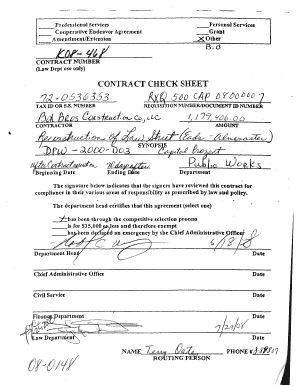 Professional Services Personal Services
Cooperative Endeavor Agreement Grant
Amendment/Extension X Other
Bid
K08-468
CONTRACT NUMBER
(Law Dept use only)
CONTRACT CHECK SHEET
72-0536353 RXQ 500 CAP 0800000 7
TAX ID OR S.S. NUMBER REQUISITION NUMBER/DOCUMENT ID NUMBER
Boh Bros Construction Co, LLC 1,179,406.00
CONTRACTOR AMOUNT
Reconstruction of Law Street
SYNOPSIS
DPW-2000-D03 Capital Project
Public Works
Beginning Date Ending Date Department
The signature below indicates that the signers have reviewed this contract for
compliance in their various areas of responsibility as prescribed by law and policy.
DEPARTMENT HEAD certifies that this agreement (select one)
has been through the competitive selection process
is for $15,000 or less and therefore exempt
has been declared an emergency by the Chief Administrative Officer
6/18/8
Department Head Date
Chief Administrative Office Date
Civil Service Date
Finance Department Date
7/20/08
Law Department Date
08-0148
NAME Terry PHONE #
ROUTING PERSON